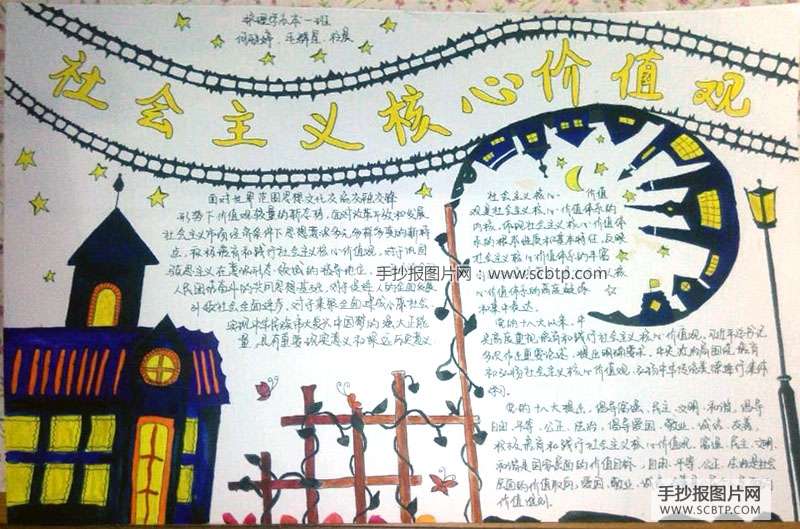 护理学本一班
社会主义核心价值观
面对世界范围思想文化交流交融交锋
形势下价值观较量的新态势,面对改革开放和发展
社会主义市场经济条件下思想意识多元多样多变的新特
点,积极培育和践行社会主义核心价值观,对于巩固
手抄报图片网:www.scbtp.com
人民团结奋斗的共同思想基础,对于促进人的全面发展
引领社会全面进步,对于集聚全面建成小康社会
实现中华民族伟大复兴中国梦的强大正能
量,具有重要现实意义和深远历史意义.
社会主义核心价值
观是社会主义核心价值体系的
内核,体现社会主义核心价值体
系的根本性质和基本特征,反映
社会主义核心价值体系的丰富
心价值体系的高度凝练
和集中表达.
党的十八大以来,中
央高度重视,培育和践行社会主义核心价值观,习近平总书记
多次作出重要论述、提出明确要求,中央政治局围绕培育
和弘扬社会主义核心价值观、弘扬中华传统美德进行集体
学习。
党的十八大提出,倡导富强、民主、文明、和谐,倡导
自由、平等、公正、法治,倡导爱国、敬业、诚信、友善,
积极培育和践行社会主义核心价值观.富强、民主、文明、
和谐是国家层面的价值目标,自由、平等、公正、法治是社会
层面的价值取向,爱国、敬业、诚
价值准则.
手抄报图片网
WWW.SCBTP.COM